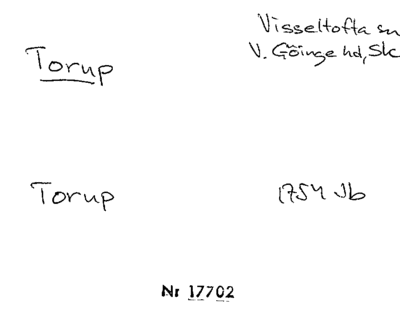 Visseltofta sn
V. Göinge hd, Sk
Torup
Torup 1754 Jb
Nr 17702